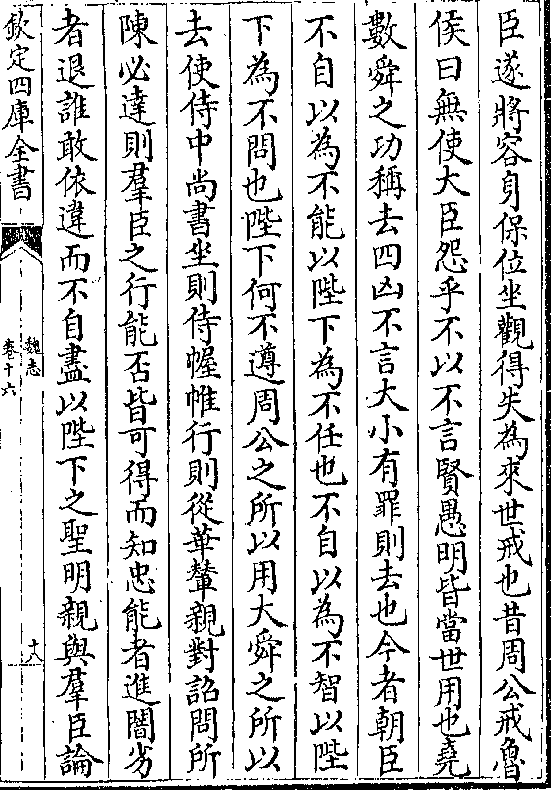 臣遂將容身保位坐觀得失為來世戒也昔周公戒魯
侯曰無使大臣怨乎不以不言賢愚明皆當世用也堯
數舜之功稱去四凶不言大小有罪則去也今者朝臣
不自以為不能以陛下為不任也不自以為不智以陛
下為不問也陛下何不遵周公之所以用大舜之所以
去使侍中尚書坐則侍幄帷行則從華輦親對詔問所
陳必達則羣臣之行能否皆可得而知忠能者進闇劣
者退誰敢依違而不自盡以陛下之聖明親與羣臣論
欽定四庫全書
魏志
卷十六
十八